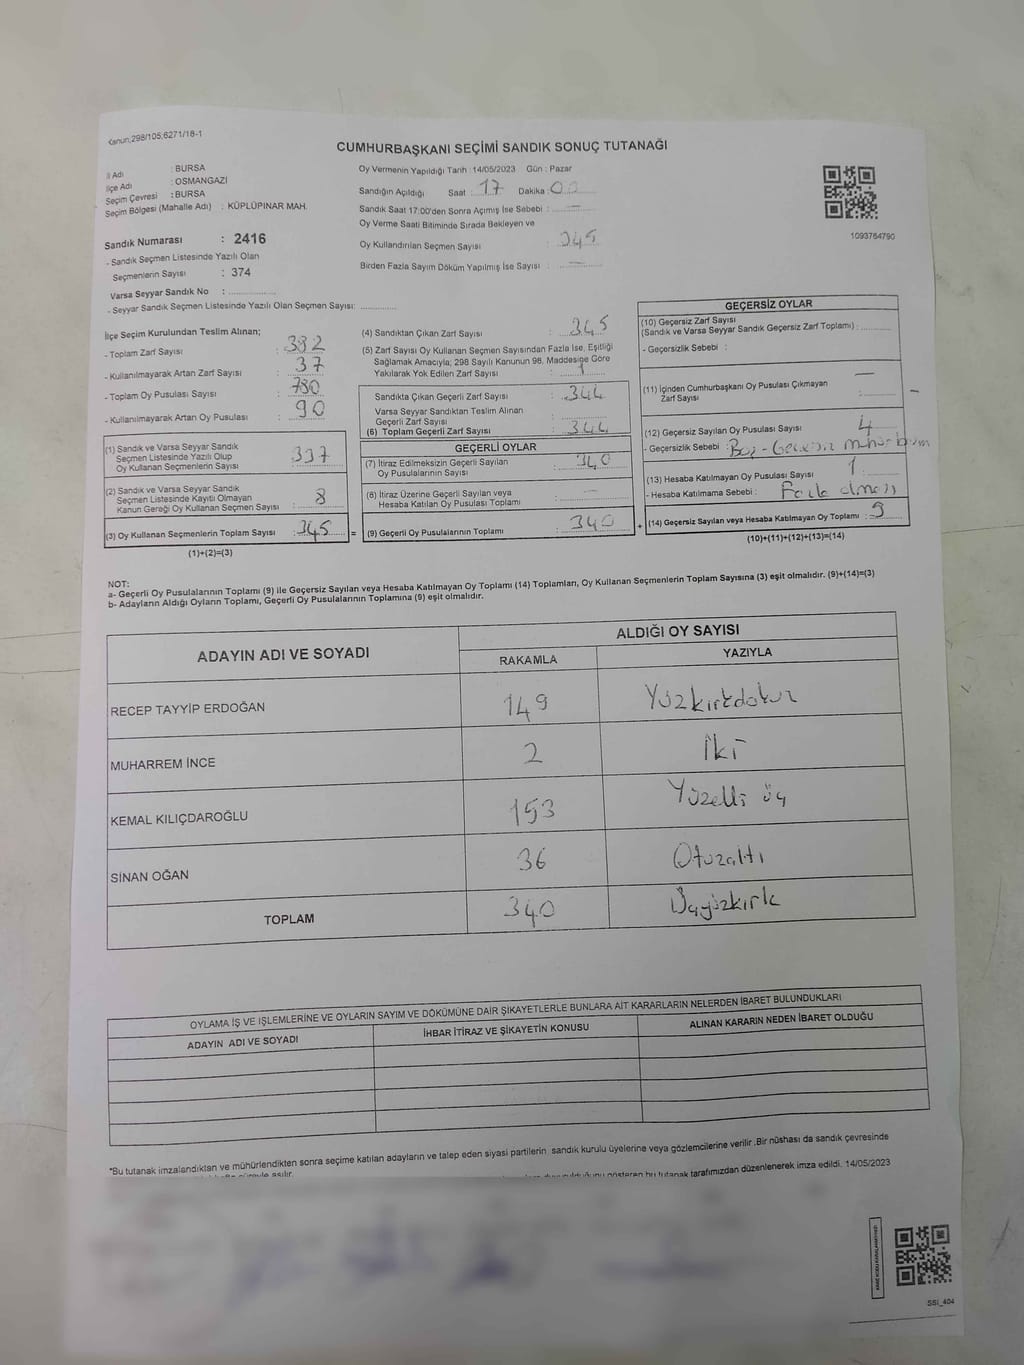 Kanun;298/105;6271/18-1
CUMHURBAŞKANI SEÇİMİ SANDIK SONUÇ TUTANAĞI
İl Adı : BURSA
İlçe Adı : OSMANGAZİ
Seçim Çevresi : BURSA
Seçim Bölgesi (Mahalle Adı) : KÜPLÜPINAR MAH.
Sandık Numarası : 2416
- Sandık Seçmen Listesinde Yazılı Olan
Seçmenlerin Sayısı : 374
Varsa Seyyar Sandık No :
- Seyyar Sandık Seçmen Listesinde Yazılı Olan Seçmen Sayısı:
Oy Vermenin Yapıldığı Tarih :14/05/2023 Gün : Pazar
Sandığın Açıldığı Saat : 17 Dakika : 00
Sandık Saat 17:00'den Sonra Açımış İse Sebebi : —
Oy Verme Saati Bitiminde Sırada Bekleyen ve
Oy Kullandırılan Seçmen Sayısı : 345
Birden Fazla Sayım Döküm Yapılmış İse Sayısı : —
1093764790
İlçe Seçim Kurulundan Teslim Alınan;
- Toplam Zarf Sayısı : 382
- Kullanılmayarak Artan Zarf Sayısı : 37
- Toplam Oy Pusulası Sayısı : 780
- Kullanılmayarak Artan Oy Pusulası : 90
(1) Sandık ve Varsa Seyyar Sandık
Seçmen Listesinde Yazılı Olup
Oy Kullanan Seçmenlerin Sayısı : 337
(2) Sandık ve Varsa Seyyar Sandık
Seçmen Listesinde Kayıtlı Olmayan
Kanun Gereği Oy Kullanan Seçmen Sayısı : 8
(3) Oy Kullanan Seçmenlerin Toplam Sayısı : 345 =
(1)+(2)=(3)
(4) Sandıktan Çıkan Zarf Sayısı : 345
(5) Zarf Sayısı Oy Kullanan Seçmen Sayısından Fazla İse, Eşitliği
Sağlamak Amacıyla; 298 Sayılı Kanunun 98. Maddesine Göre
Yakılarak Yok Edilen Zarf Sayısı : 1
Sandıkta Çıkan Geçerli Zarf Sayısı : 344
Varsa Seyyar Sandıktan Teslim Alınan
Geçerli Zarf Sayısı :
(6) Toplam Geçerli Zarf Sayısı : 344
GEÇERLİ OYLAR
(7) İtiraz Edilmeksizin Geçerli Sayılan
Oy Pusulalarının Sayısı : 340
(8) İtiraz Üzerine Geçerli Sayılan veya
Hesaba Katılan Oy Pusulası Toplamı : —
(9) Geçerli Oy Pusulalarının Toplamı : 340 +
GEÇERSİZ OYLAR
(10) Geçersiz Zarf Sayısı
(Sandık ve Varsa Seyyar Sandık Geçersiz Zarf Toplamı) :
- Geçersizlik Sebebi :
(11) İçinden Cumhurbaşkanı Oy Pusulası Çıkmayan
Zarf Sayısı : —
(12) Geçersiz Sayılan Oy Pusulası Sayısı : 4
- Geçersizlik Sebebi : Boş - Geçersiz
(13) Hesaba Katılmayan Oy Pusulası Sayısı : 1
- Hesaba Katılmama Sebebi : Fazla olması
(14) Geçersiz Sayılan veya Hesaba Katılmayan Oy Toplamı :
(10)+(11)+(12)+(13)=(14)
NOT:
a- Geçerli Oy Pusulalarının Toplamı (9) ile Geçersiz Sayılan veya Hesaba Katılmayan Oy Toplamı (14) Toplamları, Oy Kullanan Seçmenlerin Toplam Sayısına (3) eşit olmalıdır. (9)+(14)=(3)
b- Adayların Aldığı Oyların Toplamı, Geçerli Oy Pusulalarının Toplamına (9) eşit olmalıdır.
ADAYIN ADI VE SOYADI ALDIĞI OY SAYISI
RAKAMLA YAZIYLA
RECEP TAYYİP ERDOĞAN 149 Yüzkırkdokuz
MUHARREM İNCE 2 İki
KEMAL KILIÇDAROĞLU 153 Yüzelli üç
SİNAN OĞAN 36 Otuzaltı
TOPLAM 340 Üçyüzkırk
OYLAMA İŞ VE İŞLEMLERİNE VE OYLARIN SAYIM VE DÖKÜMÜNE DAİR ŞİKAYETLERLE BUNLARA AİT KARARLARIN NELERDEN İBARET BULUNDUKLARI
ADAYIN ADI VE SOYADI İHBAR İTİRAZ VE ŞİKAYETİN KONUSU ALINAN KARARIN NEDEN İBARET OLDUĞU
*Bu tutanak imzalandıktan ve mühürlendikten sonra seçime katılan adayların ve talep eden siyasi partilerin sandık kurulu üyelerine veya gözlemcilerine verilir.Bir nüshası da sandık çevresinde
gösteren bu tutanak tarafımızdan düzenlenerek imza edildi. 14/05/2023
SSİ_404